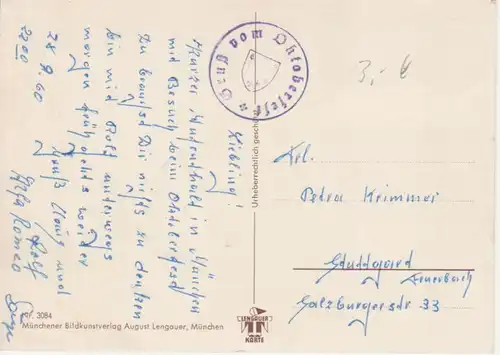 Liebling!
Kurzer Aufenthalt in München
mit Besuch beim Oktoberfest
zu brauchst Dir nichts zu denken
bin mit Rolf unterwegs
morgen früh gehts weiter
Gruß
und
Rolf
Alfa Romeo
28 9. 60
22 00
Gruß vom Oktoberfest
3,- €
Urheberrechtlich gesch
Frl.
Petra Krimmer
Stuttgard
Feuerbach
Salzburgerstr 33
Nr. 3084
Münchener Bildkunstverlag August Lengauer, München
LENGAUER
KARTE